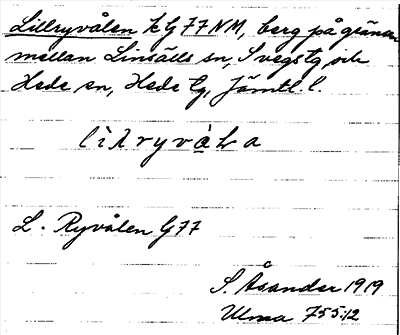 Lillryvålen k G77NM, berg på gränsen
mellan Linsälls sn, Svegs tg och
Hede sn, Hede tg, Jämtl. l.
L. Ryvålen G77
S. Åsander 1919
Ulma 755:12